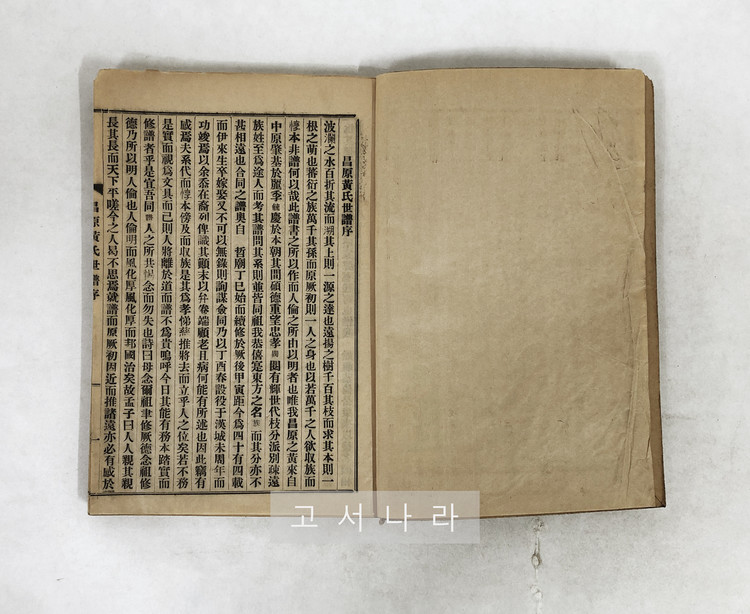 昌原黃氏世譜序
波瀾之水百折其流而溯其上則一源之達也遠揚之樹千百其枝而求其本則一
根之萌也蕃衍之族萬千其孫而原厥初則一人之身也以若萬千之人欲收族而
惇本非譜何以哉此譜書之所以作而人倫之所由以明者也唯我昌原之黃來自
中原肇基於麗季毓慶於本朝其間碩德重望忠孝 閥閱有輝世代枝分派別疎遠
族姓至爲途人而考其譜問其系則並皆同祖我恭僖寔東方之名 族而其分亦不
甚相遠也合同之譜奧自 哲廟丁巳始而續修於厥後甲寅距今爲四十有四載
而伊來生卒嫁娶又不可以無錄則詢謀僉同乃以丁酉春設役于漢城未周年而
功竣焉以余忝在裔列俾識其顚末以弁卷端顧老且病何能有所述也因此竊有
感焉夫系代而惇本傍及而收族是其爲孝悌 推將去而立乎人之位矣若不務
是實而視爲文具而已則人將離於道而譜不爲貴嗚呼今日其能有務本踏實而
修譜者乎是宜吾同 人之所共惕念而勿失也詩曰毋念爾祖聿修厥德念祖修
德乃所以明人倫也人倫明而風化厚風化厚而邦國治矣故孟子曰人人親其親
長其長而天下平嗟今之人曷不思焉就譜而原厥初因近而推諸遠亦必有感於
昌原黃氏世譜序
一
고서나라